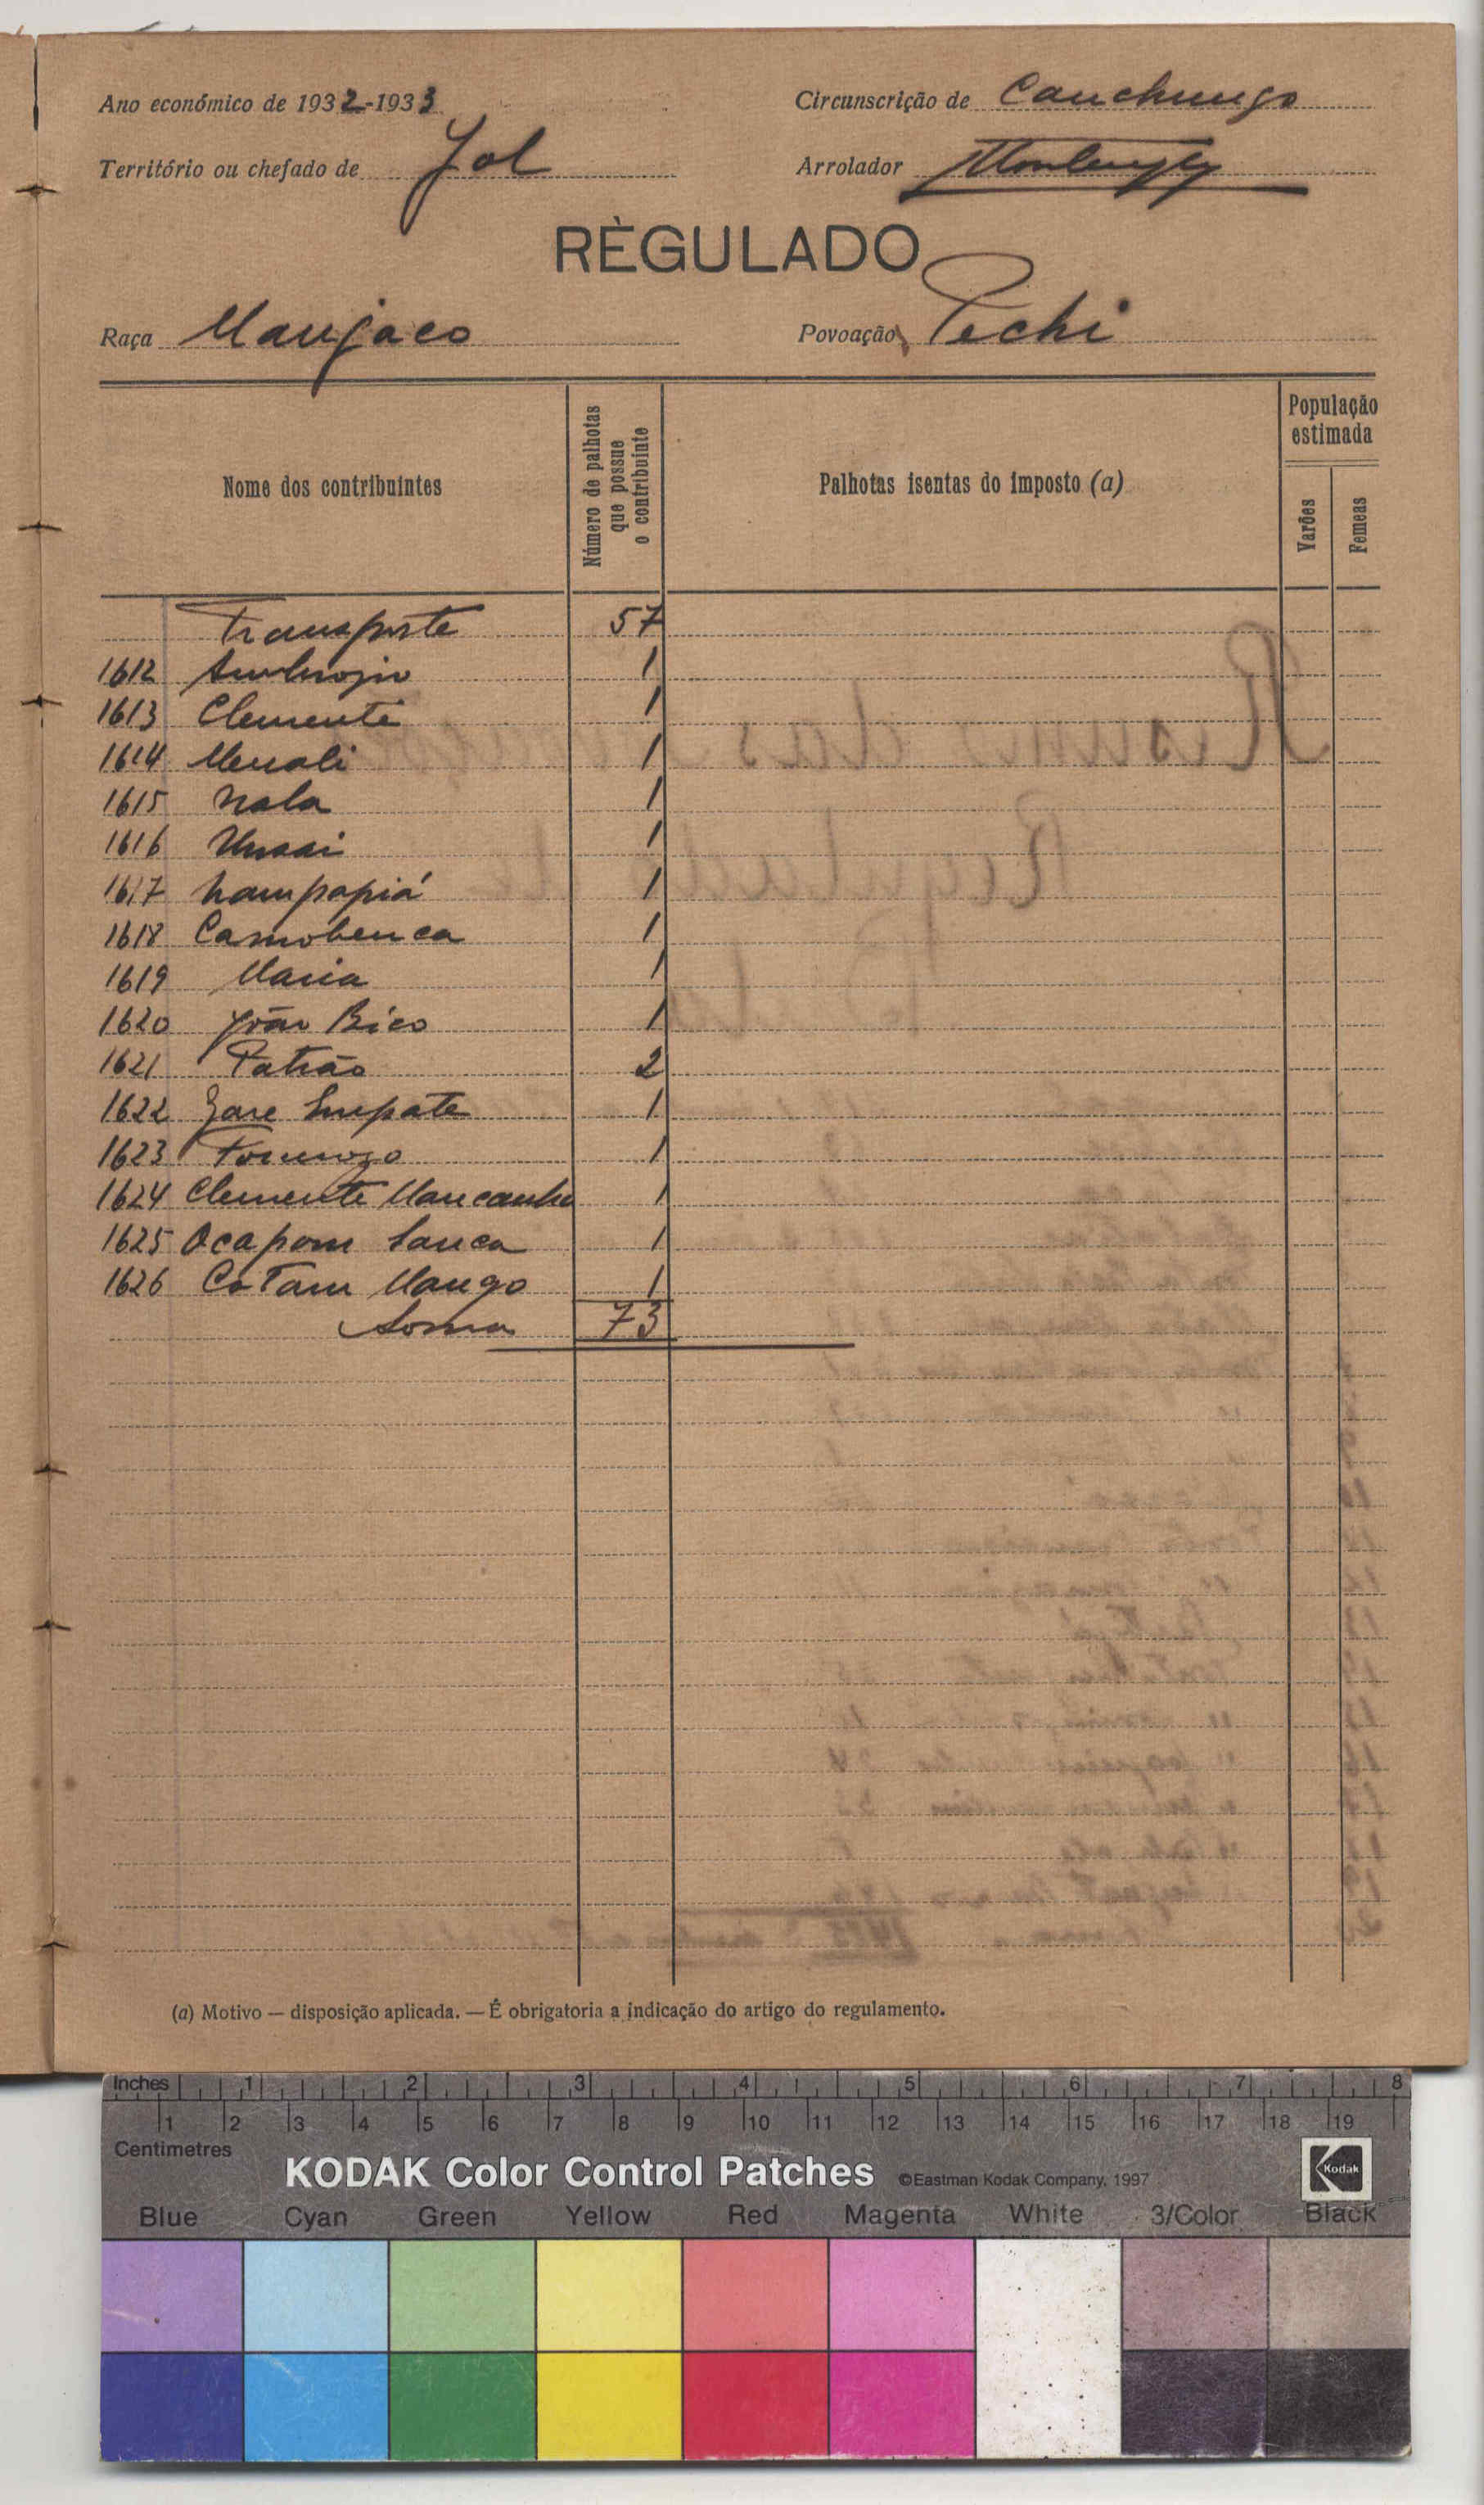 Ano económico de 1932-1933
Circunscrição de Canchungo
Território ou chefado de Jol
Arrolador
RÈGULADO
Raça Manjaco
Povoação Pechi
Nome dos contribuintes
Número de palhotas que possue o contribuinte
Palhotas isentas do imposto (a)
População estimada
Varões
Femeas
Transporte 57
1612 Ambrosio 1
1613 Clemente 1
1614 Menali 1
1615 Nala 1
1616 1
1617 Nampapiá 1
1618 Camobenca 1
1619 Maria 1
1620 João Bico 1
1621 Patrão 2
1622 1
1623 1
1624 Clemente Mancanha 1
1625 Ocapom Sanca 1
1626 Cotam Mango 1
Soma 73
(a) Motivo — disposição aplicada. — É obrigatoria a indicação do artigo do regulamento.
Inches 1 2 3 4 5 6 7 8
1 2 3 4 5 6 7 8 9 10 11 12 13 14 15 16 17 18 19
Centimetres
KODAK Color Control Patches ©Eastman Kodak Company, 1997 Kodak
Blue Cyan Green Yellow Red Magenta White 3/Color Black